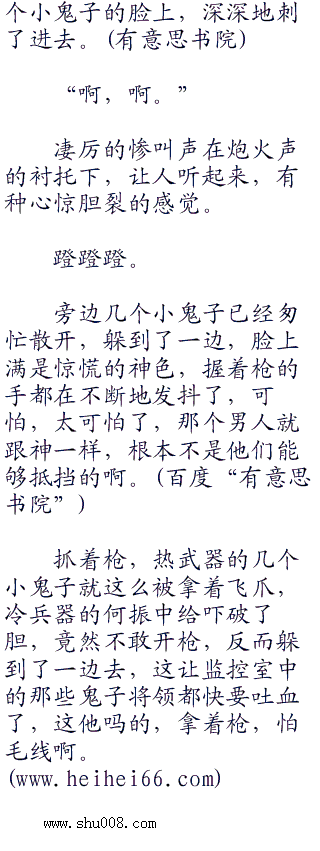 个小鬼子的脸上，深深地刺
了进去。(有意思书院)
“啊，啊。”
凄厉的惨叫声在炮火声
的衬托下，让人听起来，有
种心惊胆裂的感觉。
蹬蹬蹬。
旁边几个小鬼子已经匆
忙散开，躲到了一边，脸上
满是惊慌的神色，握着枪的
手都在不断地发抖了，可
怕，太可怕了，那个男人就
跟神一样，根本不是他们能
够抵挡的啊。(百度“有意思
书院”)
抓着枪，热武器的几个
小鬼子就这么被拿着飞爪，
冷兵器的何振中给吓破了
胆，竟然不敢开枪，反而躲
到了一边去，这让监控室中
的那些鬼子将领都快要吐血
了，这他吗的，拿着枪，怕
毛线啊。
(www.heihei66.com)
www.shu008.com